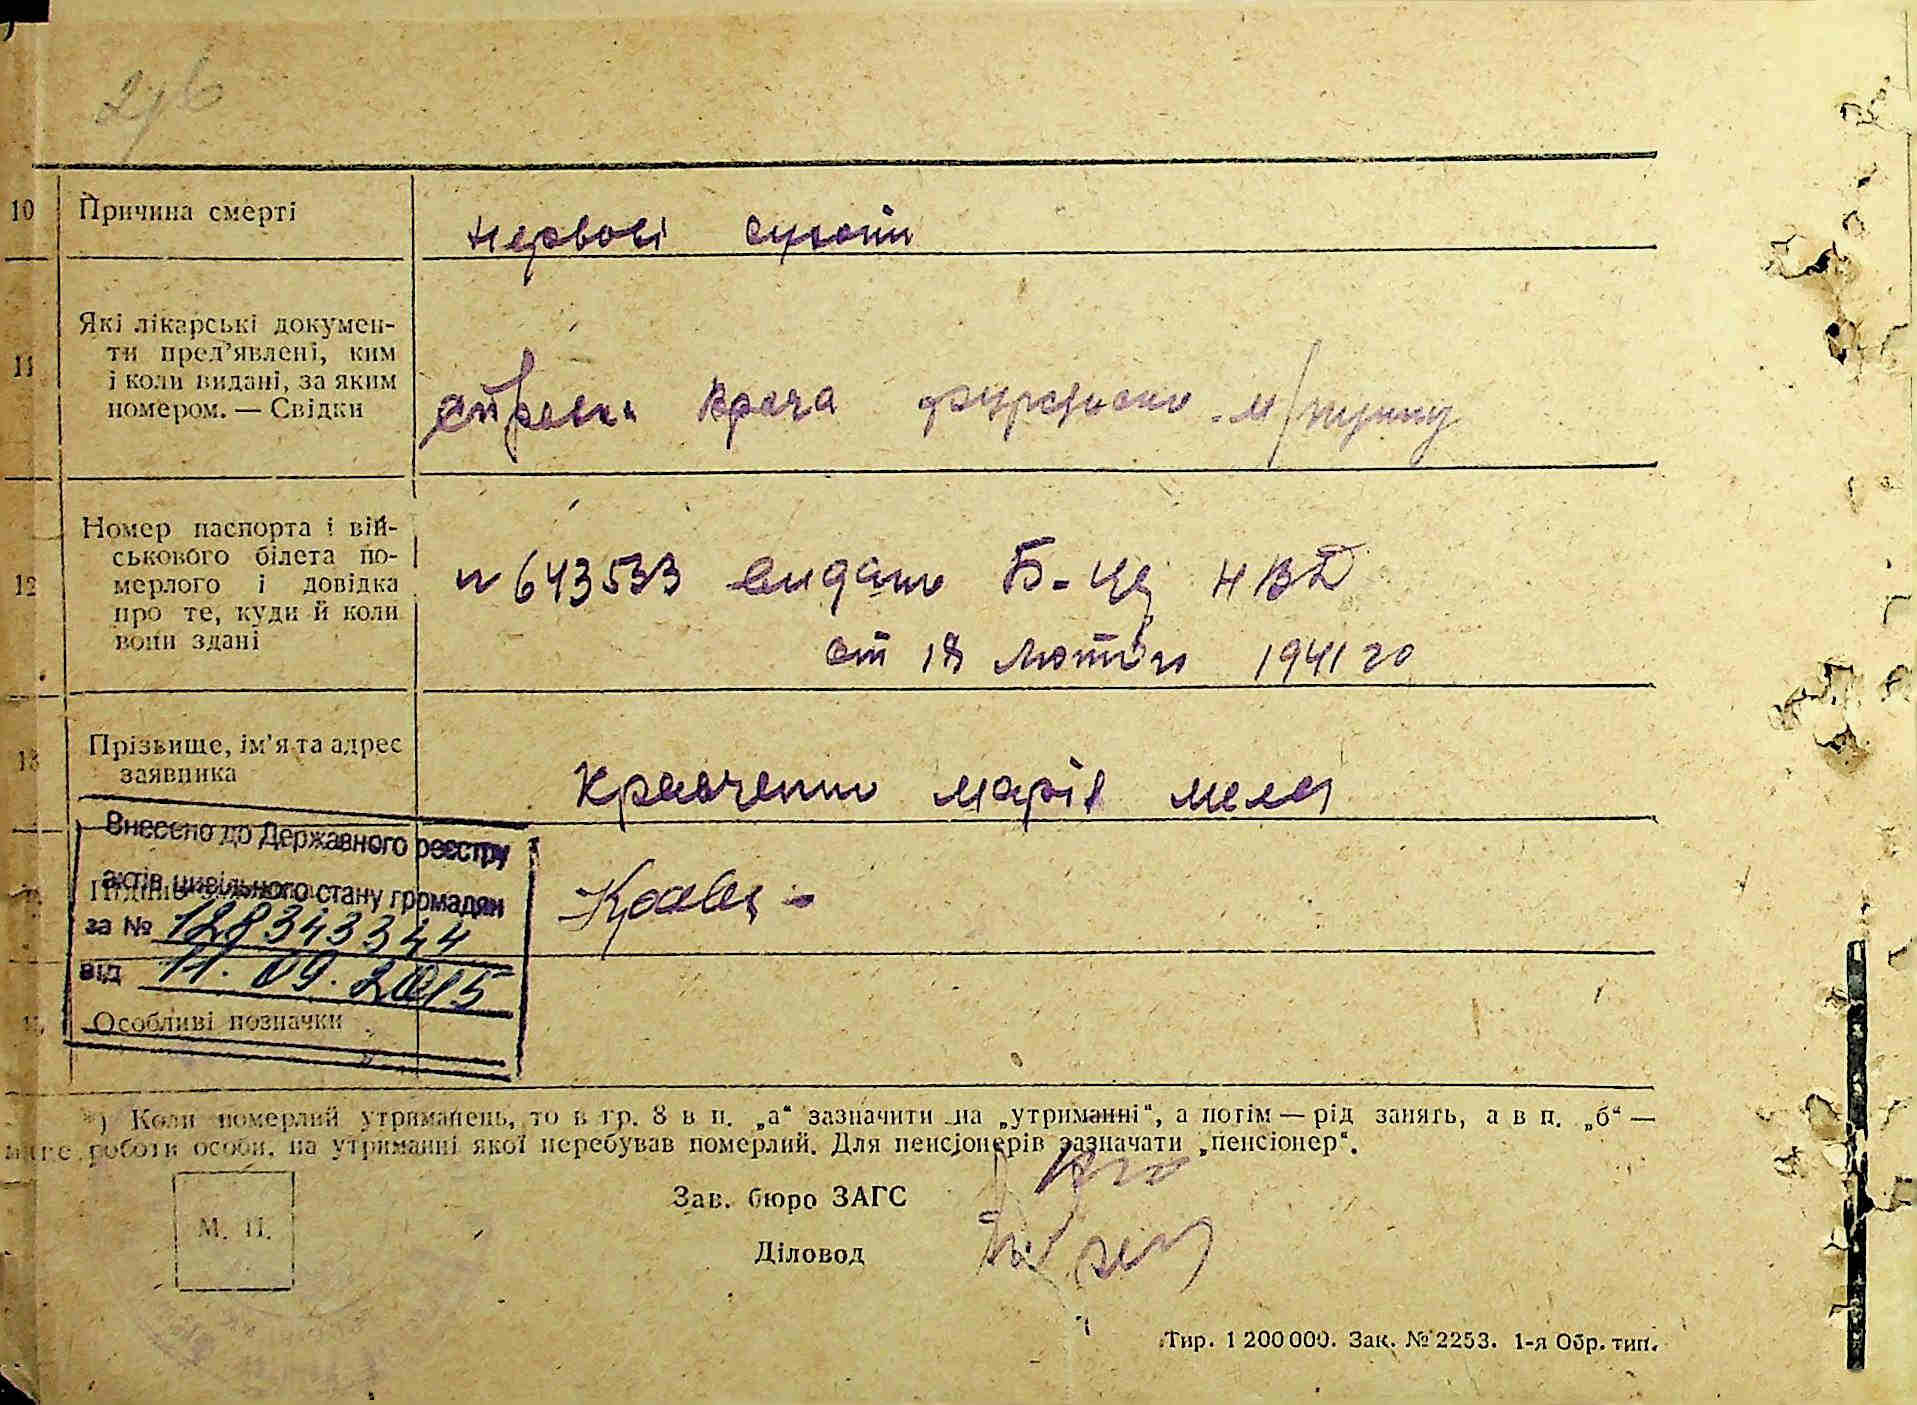 10 Причина смерті
нервові
11 Які лікарські докумен-
ти пред’явлені, ким
і коли видані, за яким
номером. — Свідки
врача м/пункту
12 Номер паспорта і вій-
ськового білета по-
мерлого і довідка
про те, куди й коли
вони здані
№ 643533 видано Б-Це НВД
от 18 лютого 1941 го
13 Прізвище, ім’я та адрес
заявника
Кравченко Марія
Внесено до Державного реєстру
актів цивільного стану громадян
за № 128343344
від 11.09.2015
Особливі позначки
*) Коли померлий утриманець, то в гр. 8 в п. „а“ зазначити на „утриманні“, а потім — рід занять, а в п. „б“ —
місце роботи особи, на утриманні якої перебував померлий. Для пенсіонерів зазначати „пенсіонер“.
Зав. бюро ЗАГС
М. П.
Діловод
Тир. 1 200 000. Зак. № 2253. 1-я Обр. тип.